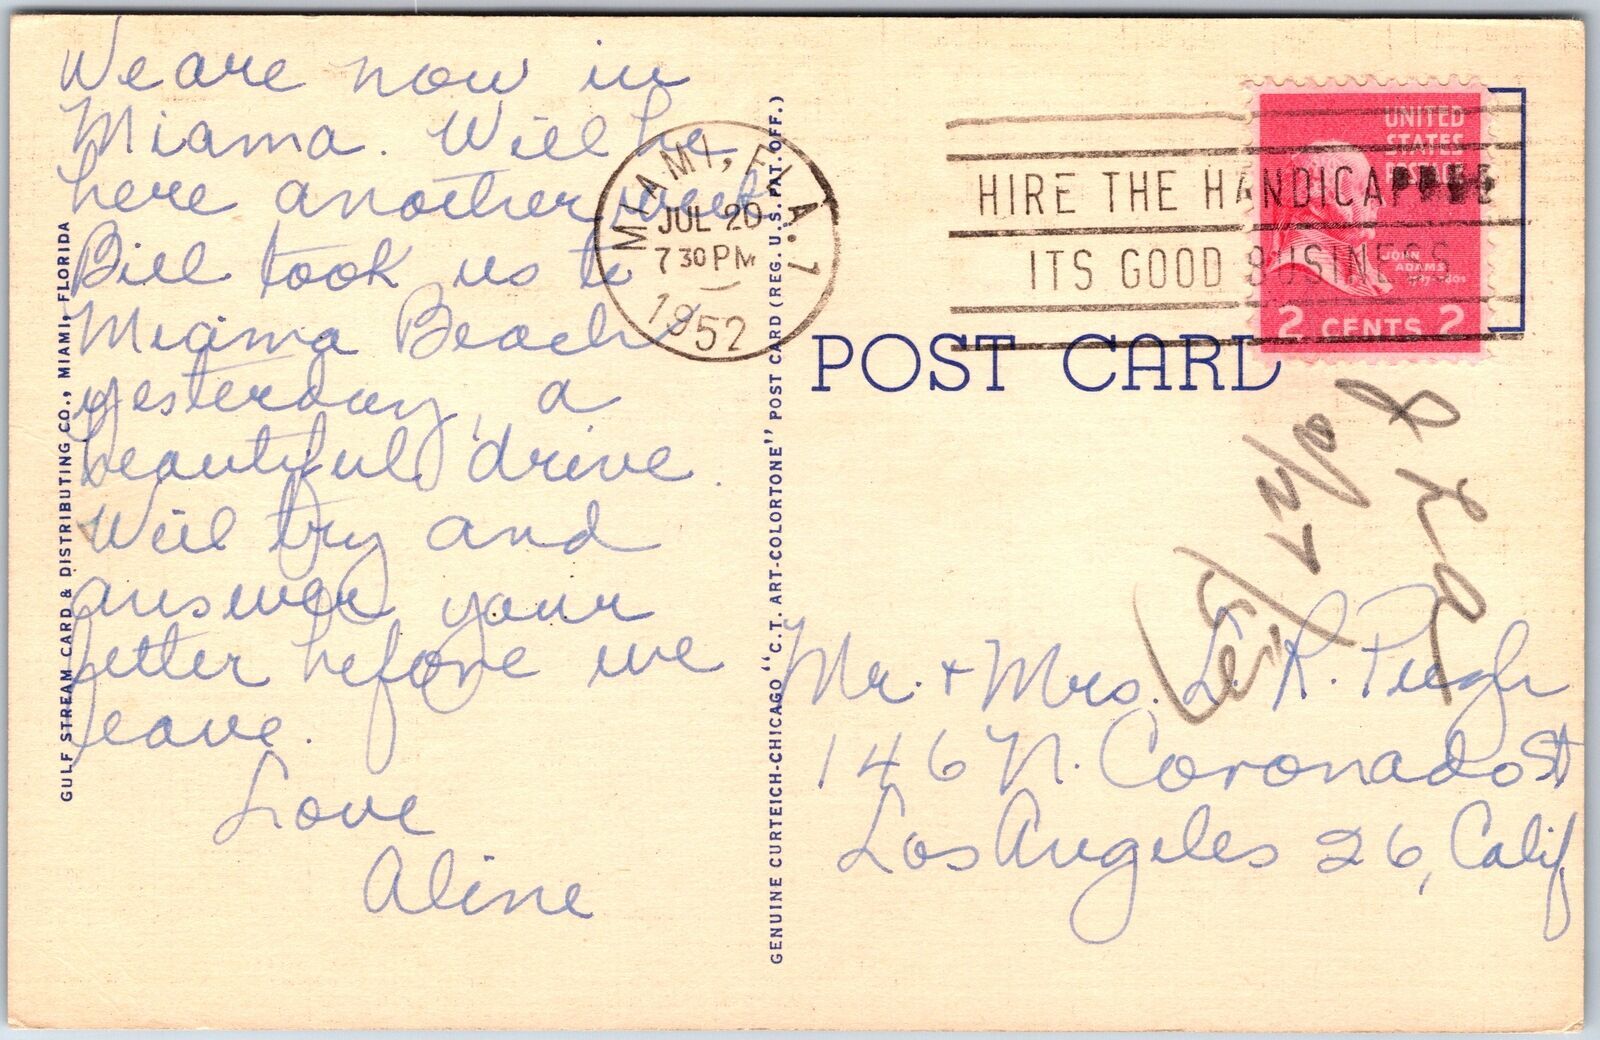 We are now in
Miama. Will be
here another week
Bill took us to
Miama Beach
yesterday, a
beautiful drive.
Will try and
answer your
letter before we
leave.
Love
Aline
GULF STREAM CARD & DISTRIBUTING CO., MIAMI, FLORIDA
GENUINE CURTEICH-CHICAGO "C.T. ART-COLORTONE" POST CARD (REG. U.S. PAT. OFF.)
MIAMI, FLA. 1
JUL 20
7 30 PM
1952
HIRE THE HANDICAPPED
ITS GOOD BUSINESS
UNITED
STATES
POSTAGE
JOHN
ADAMS
1797-1801
2 CENTS 2
POST CARD
Mr. + Mrs. L. R. Pugh
146 N. Coronado St
Los Angeles 26, Calif.